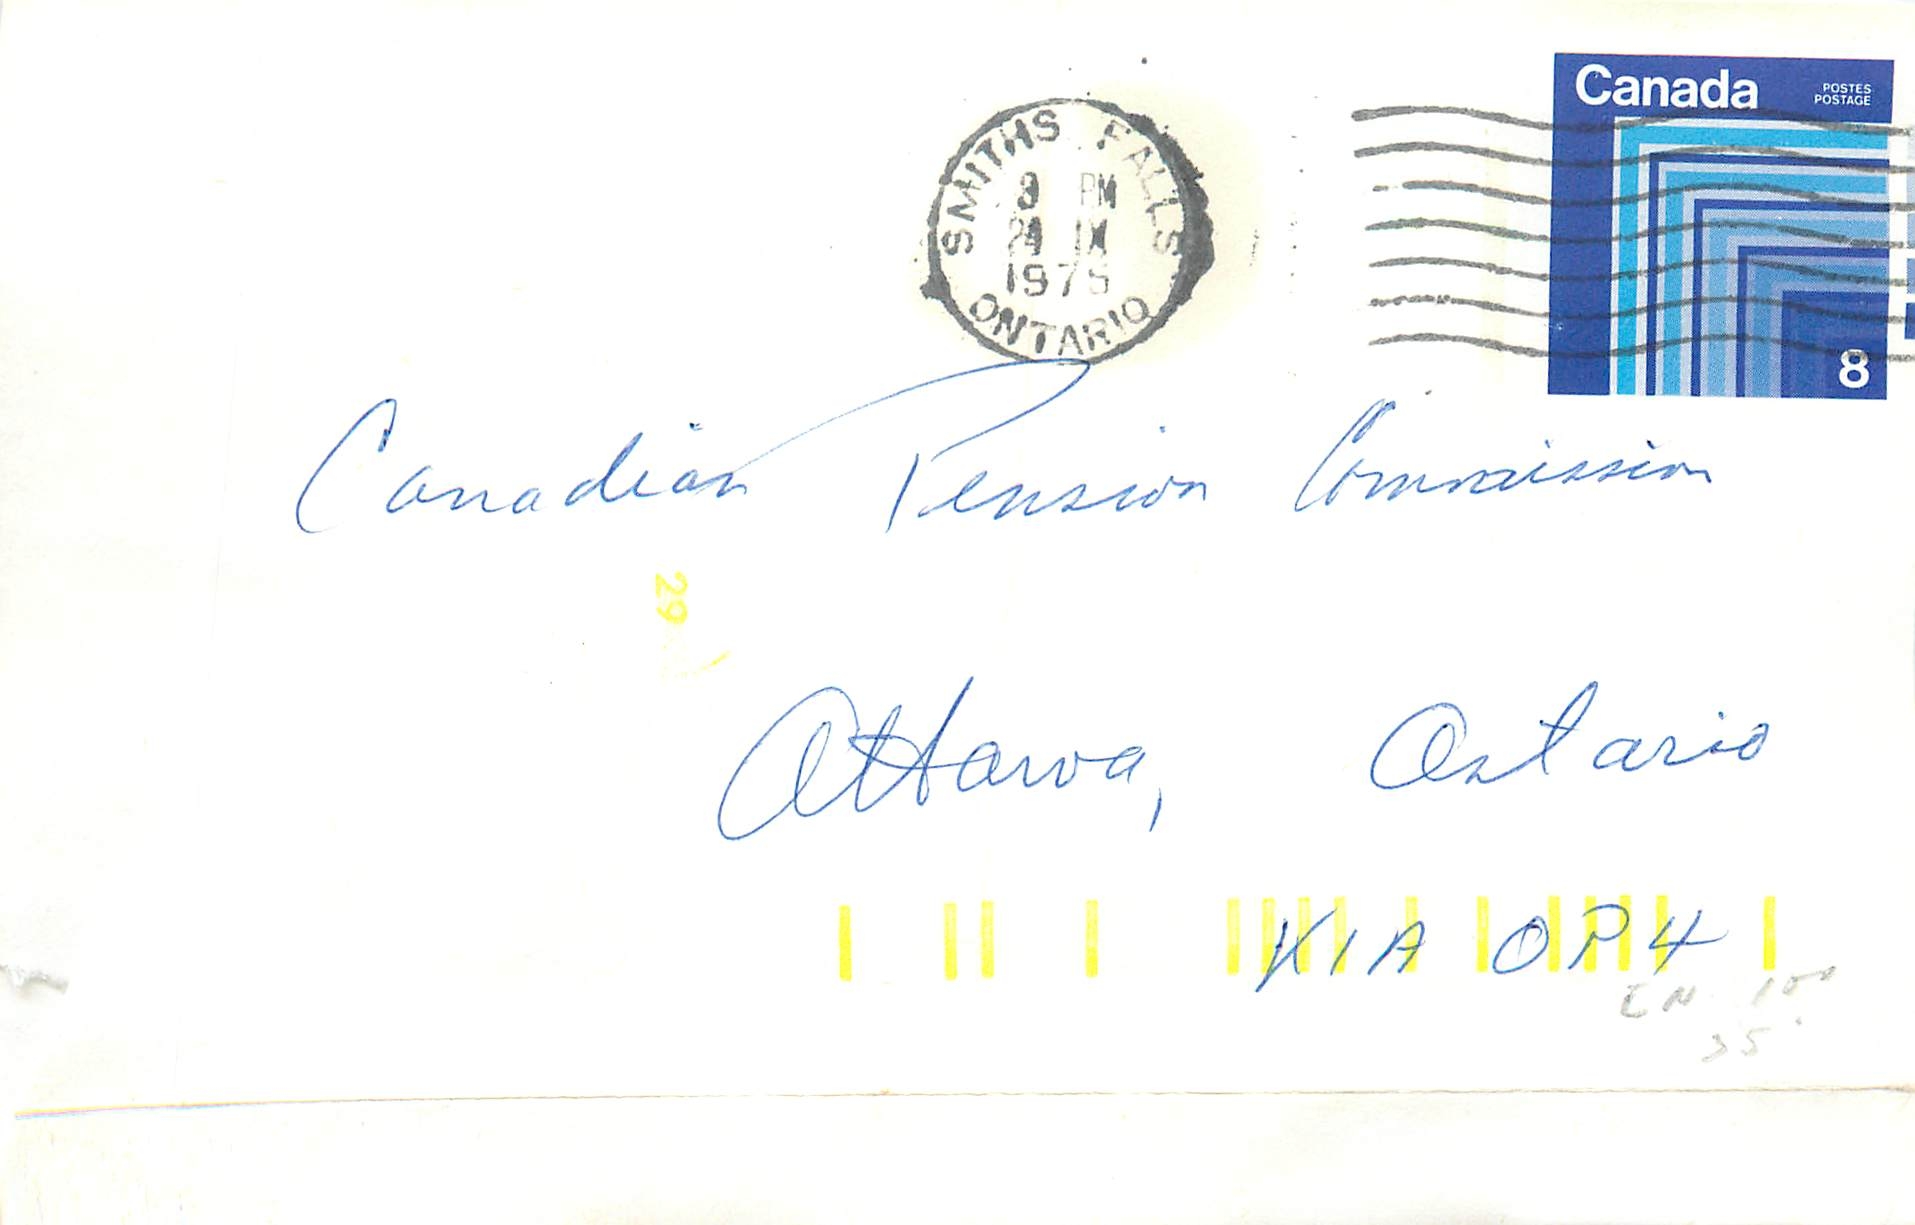 Canada
POSTES
POSTAGE
SMITHS FALLS
8 PM
24 IX
1975
ONTARIO
8
Canadian Pension Commission
29
Ottawa, Ontario
K1A 0P4
EN 10⁰⁰
35